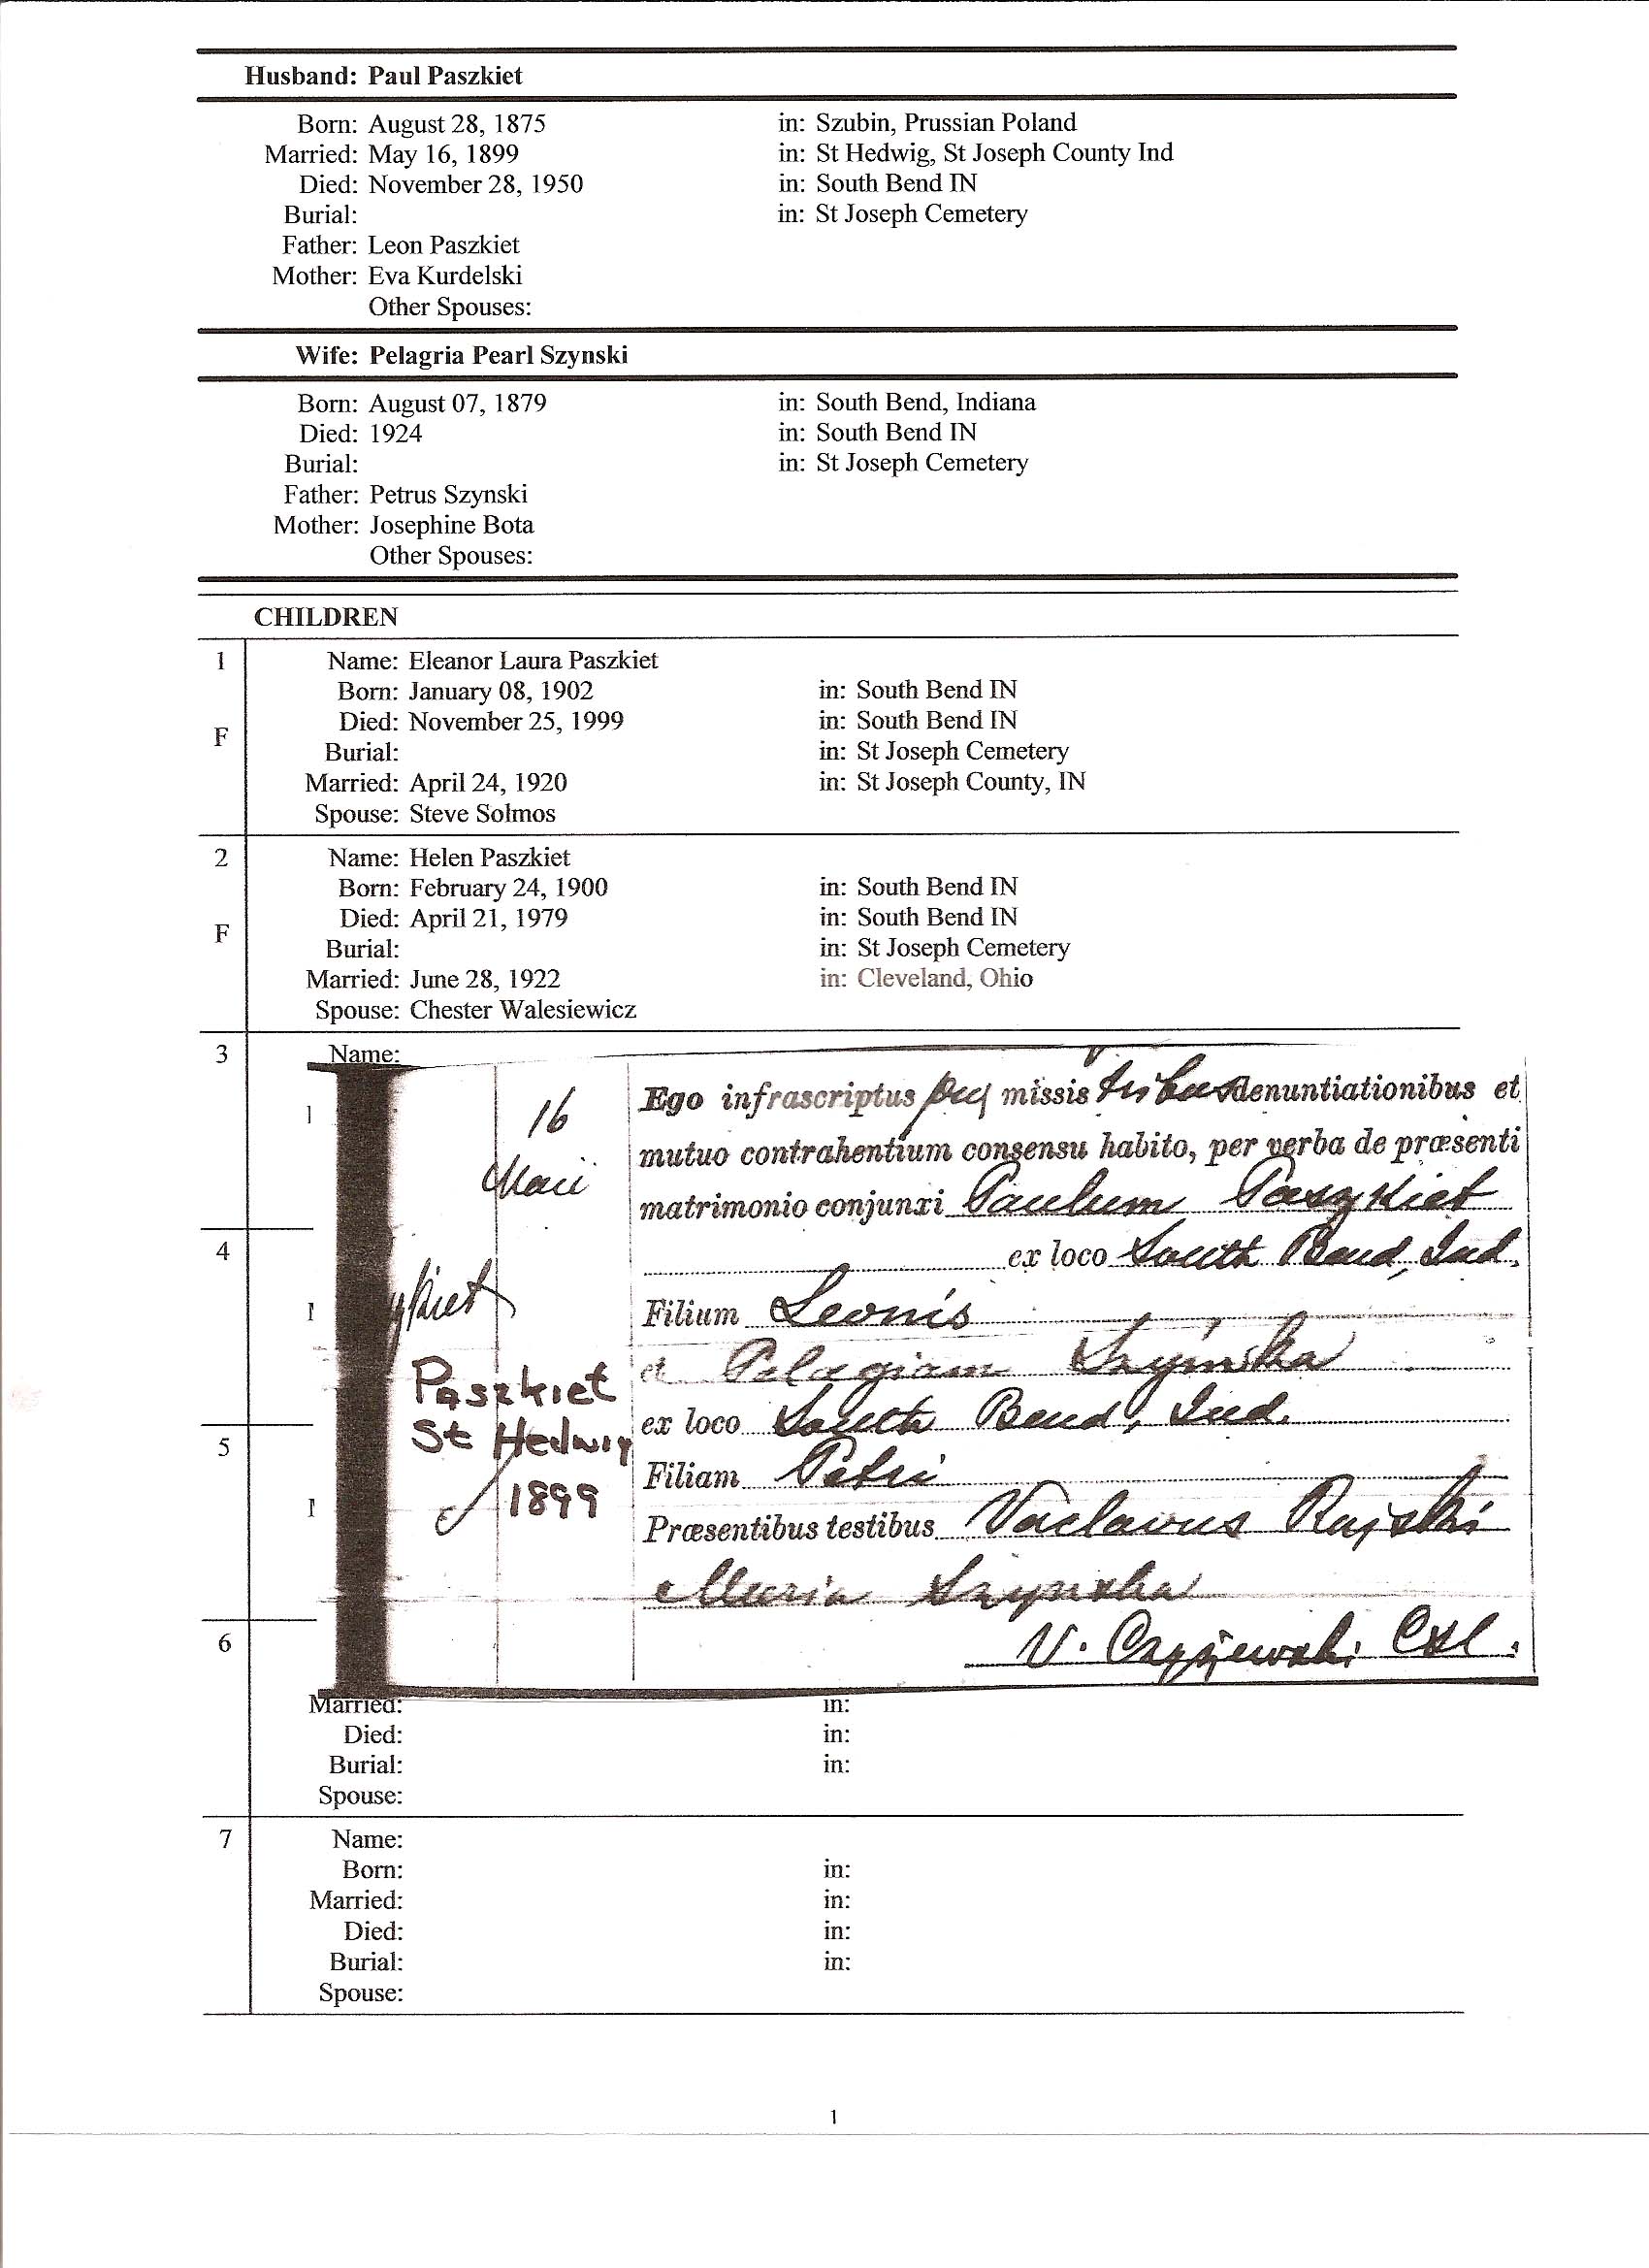 Husband: Paul Paszkiet
Born: August 28, 1875 in: Szubin, Prussian Poland
Married: May 16, 1899 in: St Hedwig, St Joseph County Ind
Died: November 28, 1950 in: South Bend IN
Burial: in: St Joseph Cemetery
Father: Leon Paszkiet
Mother: Eva Kurdelski
Other Spouses:
Wife: Pelagria Pearl Szynski
Born: August 07, 1879 in: South Bend, Indiana
Died: 1924 in: South Bend IN
Burial: in: St Joseph Cemetery
Father: Petrus Szynski
Mother: Josephine Bota
Other Spouses:
CHILDREN
1 Name: Eleanor Laura Paszkiet
Born: January 08, 1902 in: South Bend IN
Died: November 25, 1999 in: South Bend IN
F
Burial: in: St Joseph Cemetery
Married: April 24, 1920 in: St Joseph County, IN
Spouse: Steve Solmos
2 Name: Helen Paszkiet
Born: February 24, 1900 in: South Bend IN
Died: April 21, 1979 in: South Bend IN
F
Burial: in: St Joseph Cemetery
Married: June 28, 1922 in: Cleveland, Ohio
Spouse: Chester Walesiewicz
3 Name:
16
Maii
Ego infrascriptus missis tribus denuntiationibus et
mutuo contrahentium consensu habito, per verba de præsenti
matrimonio conjunxi Paulum Paszkiet
4
ex loco South Bend, Ind.
kiet
Filium Leonis
et Pelagiam Szynska
Paszkiet
St Hedwig
1899
ex loco South Bend, Ind.
5
Filiam Petri
Præsentibus testibus Vaclavus Rajski
Maria Szynska
6
V. Czyzewski CSC.
Married: in:
Died: in:
Burial: in:
Spouse:
7 Name:
Born: in:
Married: in:
Died: in:
Burial: in:
Spouse:
1